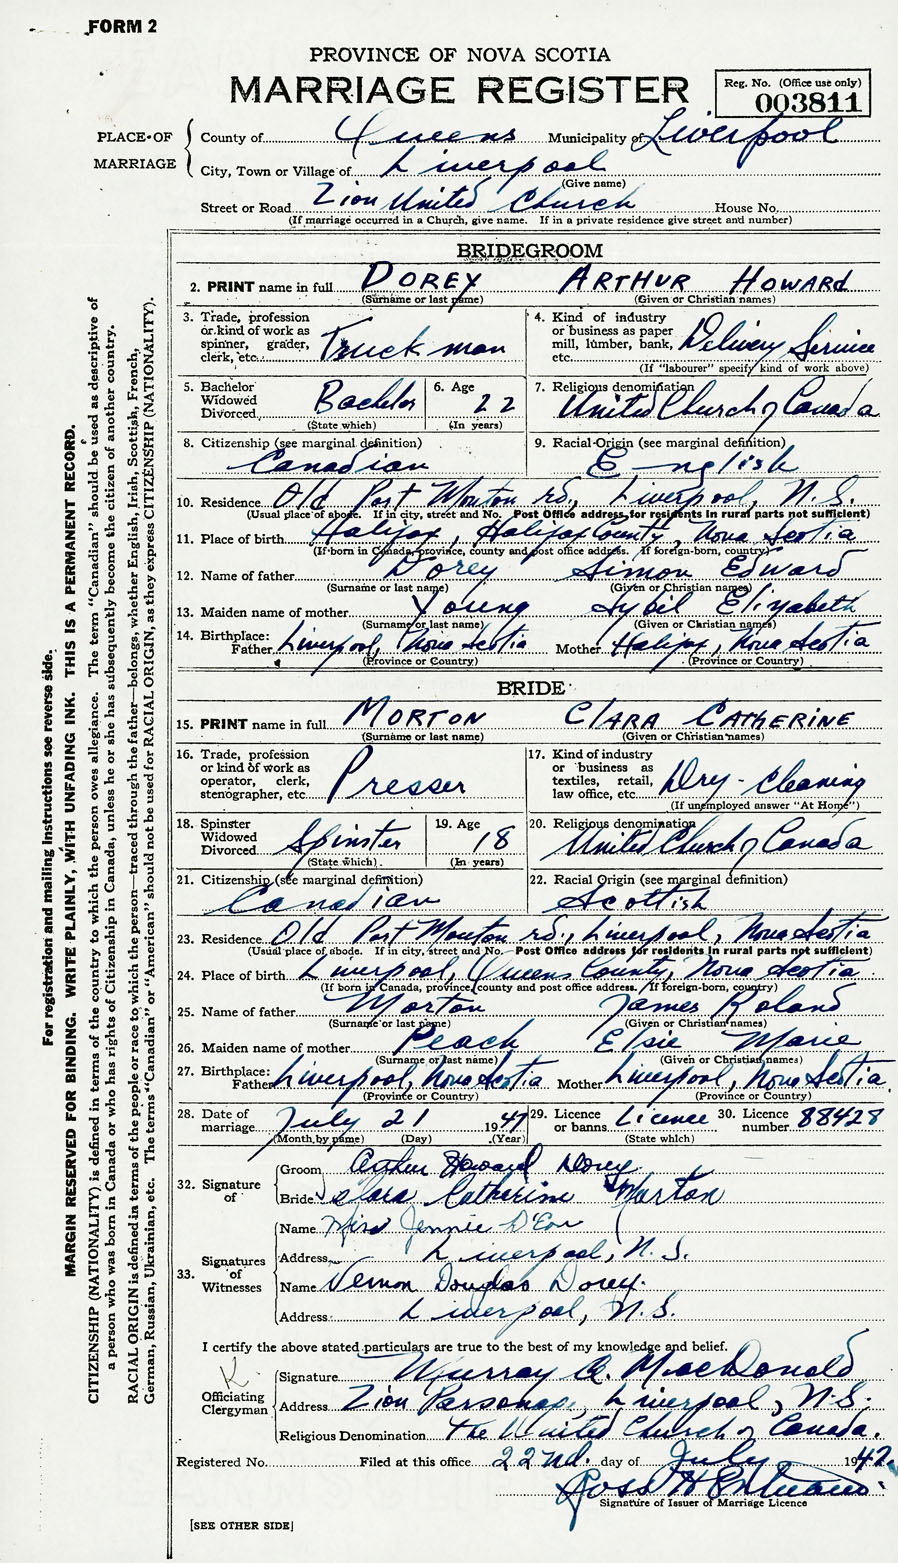 FORM 2
PROVINCE OF NOVA SCOTIA
MARRIAGE REGISTER
Reg. No. (Office use only)
003811
PLACE OF MARRIAGE
County of Queens Municipality of Liverpool
City, Town or Village of Liverpool
(Give name)
Street or Road Zion United Church House No.
(If marriage occurred in a Church, give name. If in a private residence give street and number)
BRIDEGROOM
2. PRINT name in full DOREY ARTHUR HOWARD
(Surname or last name) (Given or Christian names)
3. Trade, profession or kind of work as spinner, grader, clerk, etc. Truckman
4. Kind of industry or business as paper mill, lumber, bank, etc. Delivery Service
(If "labourer" specify kind of work above)
5. Bachelor Widowed Divorced Bachelor
(State which)
6. Age 22
(In years)
7. Religious denomination United Church of Canada
8. Citizenship (see marginal definition) Canadian
9. Racial Origin (see marginal definition) English
10. Residence Old Port Mouton rd., Liverpool, N.S.
(Usual place of abode. If in city, street and No. Post Office address for residents in rural parts not sufficient)
11. Place of birth Halifax, Halifax County, Nova Scotia
(If born in Canada, province, county and post office address. If foreign-born, country)
12. Name of father Dorey Simon Edward
(Surname or last name) (Given or Christian names)
13. Maiden name of mother Young Sybil Elizabeth
(Surname or last name) (Given or Christian names)
14. Birthplace: Father Liverpool, Nova Scotia Mother Halifax, Nova Scotia
(Province or Country) (Province or Country)
BRIDE
15. PRINT name in full MORTON CLARA CATHERINE
(Surname or last name) (Given or Christian names)
16. Trade, profession or kind of work as operator, clerk, stenographer, etc. Presser
17. Kind of industry or business as textiles, retail, law office, etc. Dry-Cleaning
(If unemployed answer "At Home")
18. Spinster Widowed Divorced Spinster
(State which)
19. Age 18
(In years)
20. Religious denomination United Church of Canada
21. Citizenship (see marginal definition) Canadian
22. Racial Origin (see marginal definition) Scottish
23. Residence Old Port Mouton rd., Liverpool, Nova Scotia
(Usual place of abode. If in city, street and No. Post Office address for residents in rural parts not sufficient)
24. Place of birth Liverpool, Queens County, Nova Scotia
(If born in Canada, province, county and post office address. If foreign-born, country)
25. Name of father Morton James Roland
(Surname or last name) (Given or Christian names)
26. Maiden name of mother Peach Elsie Marie
(Surname or last name) (Given or Christian names)
27. Birthplace: Father Liverpool, Nova Scotia Mother Liverpool, Nova Scotia
(Province or Country) (Province or Country)
28. Date of marriage July 21 1947
(Month by name) (Day) (Year)
29. Licence or banns Licence
(State which)
30. Licence number 88428
32. Signature of
Groom Arthur Howard Dorey
Bride Clara Catherine Morton
33. Signatures of Witnesses
Name Miss Jennie D'Eon
Address Liverpool, N.S.
Name Vernon Douglas Dorey
Address Liverpool, N.S.
I certify the above stated particulars are true to the best of my knowledge and belief.
K
Officiating Clergyman
Signature Murray A. MacDonald
Address Zion Parsonage, Liverpool, N.S.
Religious Denomination The United Church of Canada.
Registered No. Filed at this office 22nd. day of July 1947.
Ross H
Signature of Issuer of Marriage Licence
[SEE OTHER SIDE]
For registration and mailing instructions see reverse side.
MARGIN RESERVED FOR BINDING. WRITE PLAINLY, WITH UNFADING INK. THIS IS A PERMANENT RECORD.
CITIZENSHIP (NATIONALITY) is defined in terms of the country to which the person owes allegiance. The term "Canadian" should be used as descriptive of
a person who was born in Canada or who has rights of Citizenship in Canada, unless he or she has subsequently become the citizen of another country.
RACIAL ORIGIN is defined in terms of the people or race to which the person—traced through the father—belongs, whether English, Irish, Scottish, French,
German, Russian, Ukrainian, etc. The terms "Canadian" or "American" should not be used for RACIAL ORIGIN, as they express CITIZENSHIP (NATIONALITY).